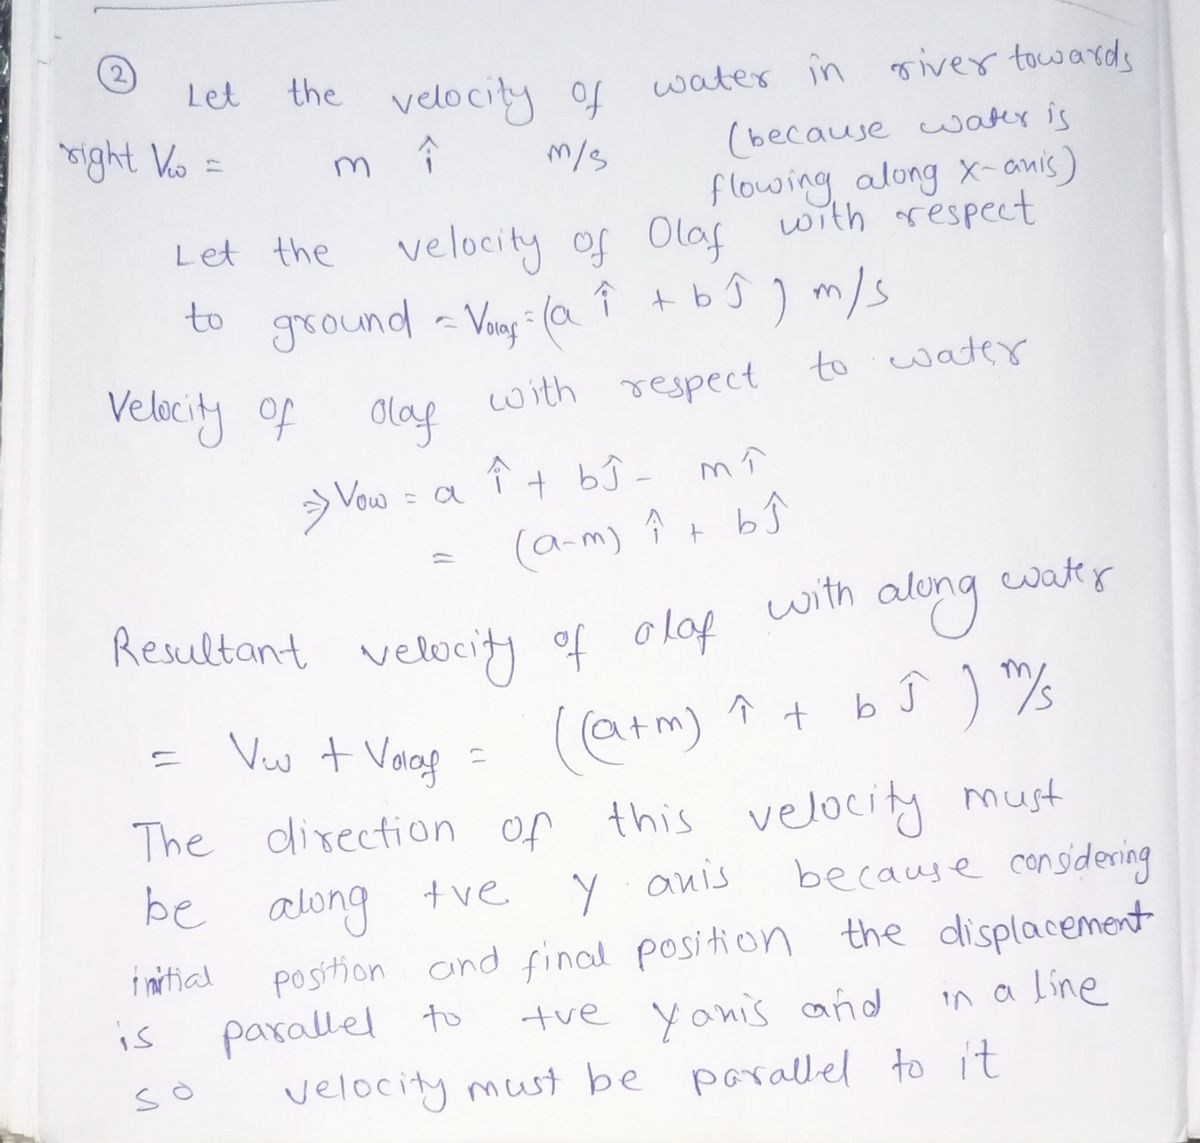 ② Let the velocity of water in river towards
right Vw = m î m/s (because water is
flowing along x-anis)
Let the velocity of Olaf with respect
to ground = Volaf = (a î + b ĵ) m/s
Velocity of olaf with respect to water
⇒ Vow = a î + bĵ - m î
= (a-m) î + bĵ
Resultant velocity of olaf with along water
= Vw + Volaf = ((a+m) î + b ĵ) m/s
The direction of this velocity must
be along +ve y anis because considering
initial position and final position the displacement
is parallel to +ve y anis and in a line
so velocity must be parallel to it